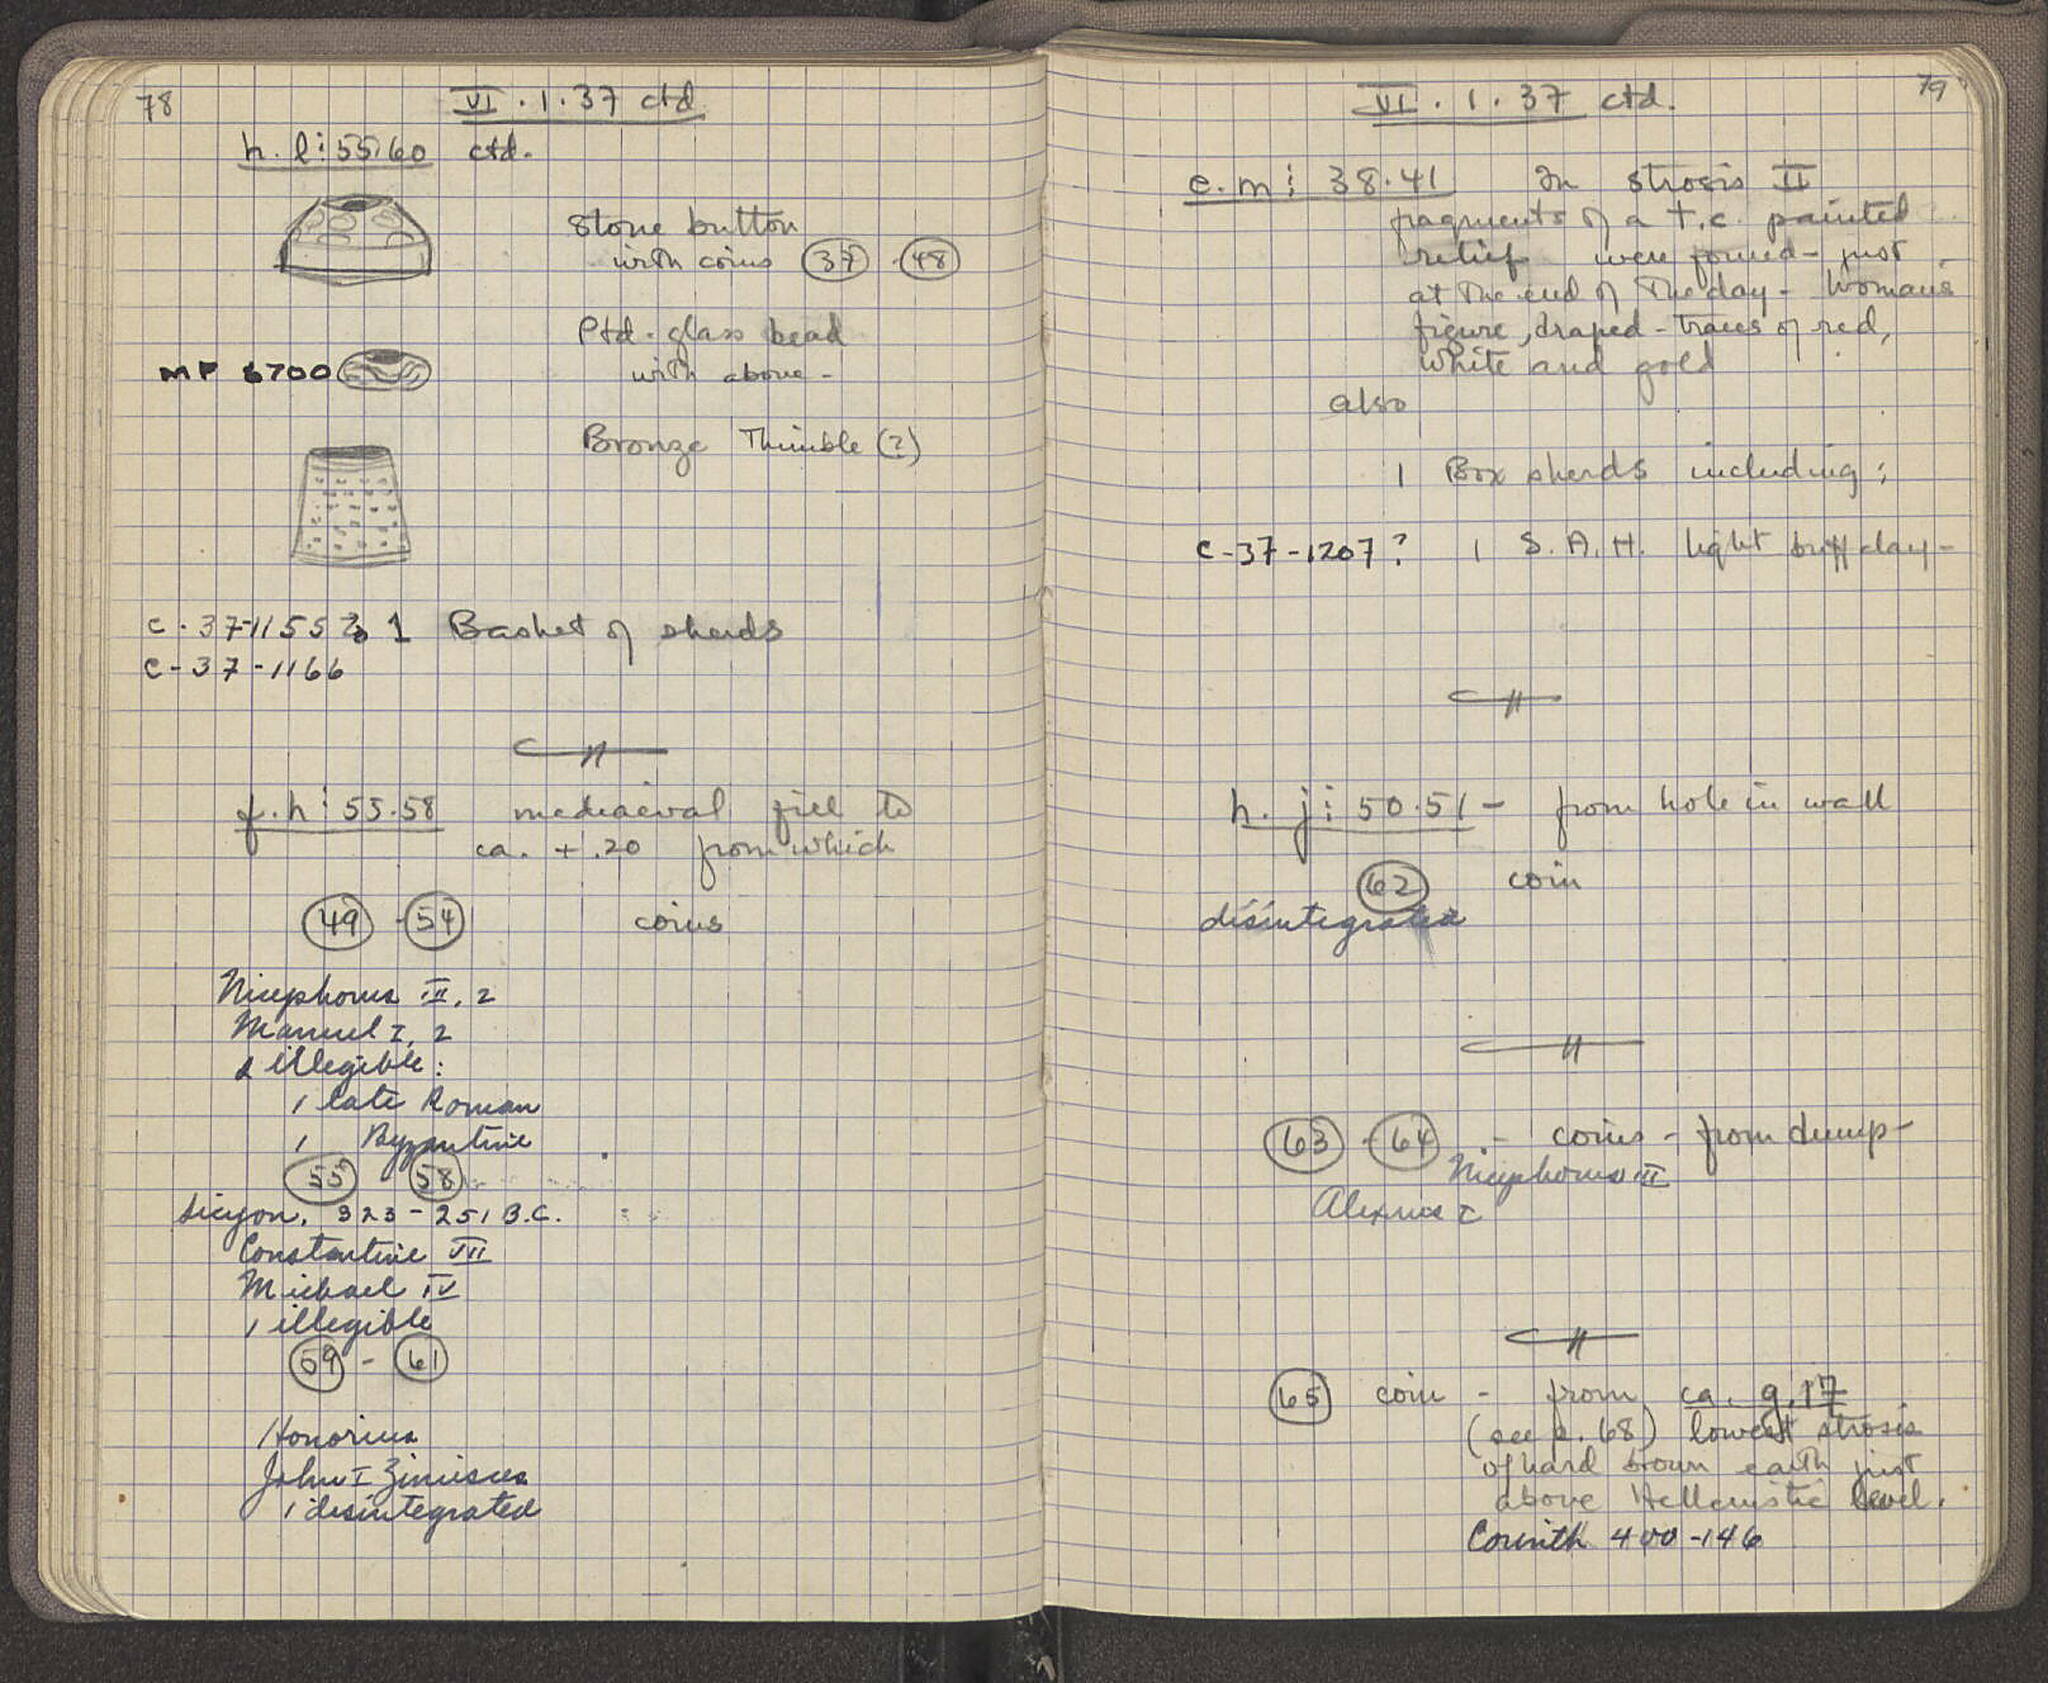 78
VI . 1 . 37 ctd
h. l : 55.60 ctd.
Stone button
with coins 37 - 48
Ptd. glass bead
MP 6700 with above -
Bronze Thimble (?)
C - 37-1155 1 Basket of sherds
C - 37 - 1166
f. h : 55.58 mediaeval fill to
ca. + .20 from which
49 - 54 coins
Nicephorus III, 2
Manuel I, 2
2 illegible :
1 late Roman
1 Byzantine
55 58
Sicyon, 323 - 251 B.C.
Constantine VII
Michael IV
1 illegible
59 - 61
Honorius
John I Zimisces
1 disintegrated
79
VI . 1 . 37 ctd.
e. m : 38.41 In strosis II
fragments of a t.c. painted
relief were found - just
at the end of the day - Woman's
figure, draped - traces of red,
white and gold
also
1 Box sherds including :
C - 37 - 1207 ? 1 S. A. H. light buff clay -
h. j : 50.51 - from hole in wall
62 coin
disintegrated
63 - 64 - coins - from dump -
Nicephorus III
Alexius I
65 coin - from ca. 9.17
(see p. 68) lowest strosis
of hard brown earth just
above Hellenistic level.
Corinth 400 - 146